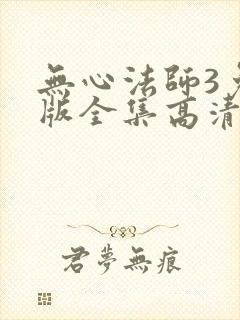 無心法師3
版全集高清
君夢無痕